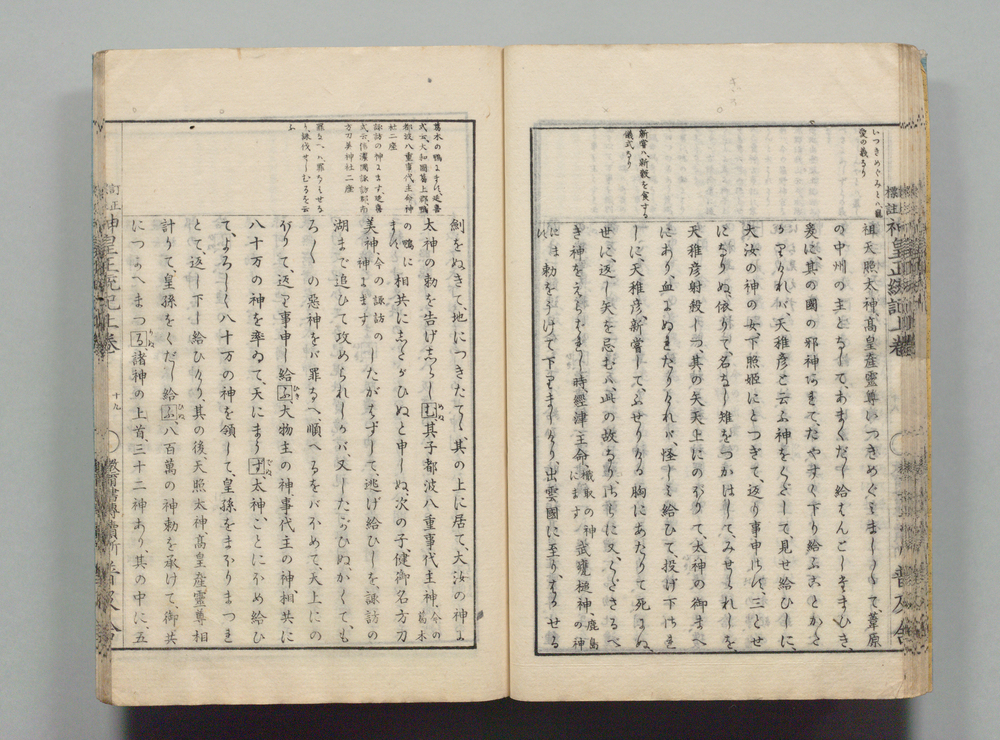 いつきめぐみとハ寵
愛の義なり
新嘗ハ新穀を食する
儀式なり
祖天照太神高皇産靈尊いつきめぐミましき〳〵て葦原
の中州の主となして、あまくだし給はんとしませまひき、
爰に、其の國の邪神あれて、たやすく下り給ふことかた
かりけれバ、天稚彦と云ふ神をくだして、見せ給ひしに、
大汝の神の女、下照姫にとつぎて、返り事申さで、三とせ
になりぬ、依りて、名なし雉をつかはして、みせられしを、
天稚彦射殺しつ、其の矢天上にのぼりて、太神の御まへ
にあり、血にぬれたりけれバ、怪しミ給ひて、投げ下されき
しに、天稚彦、新嘗して、ふせりける胸にあたりて死にぬ、
世に、返し矢を忌むハ、此の故なり、さらに又、くださるべ
き神をえらバれし時、經津主命、檝取の神にます武甕槌神、鹿島の神
にます勅をうけて、下りましけり、出雲國に至り、はかせる
葛木の鴨にますハ、延喜
式云、大和國葛上郡、鴨
都波八重事代主命神
社二座
諏訪の神にます、延喜
式云信濃國諏訪郡、南
方刀美神社二座
罪なへハ、罪なハせる
ハ誅伐せしむるを云
ふ
劍をぬきて、地につきたてゝ、其の上に居て、大汝の神に
太神の勅を告げしらしむ、其子都波八重事代主神、今の葛木
の鴨にます相共にしたがひぬと申しぬ、次の子、健御名方刀
美神、今の諏訪の神にますしたがはずして、逃げ給ひしを、諏訪の
湖まで追ひて攻められしかバ、又したがひぬ、かくて、も
ろ〳〵の惡神をバ罪なへ、順へるをバほめて、天上にの
ぼりて、返り事申し給ふ、大物主の神、事代主の神、相共に
八十万の神を率ゐて、天にまうず、太神、ことにほめ給ひ
て、よろしく八十万の神を領して、皇孫をまぼりまつれ
とて、返し下し給ひけり、其の後、天照太神高皇産靈尊相
計りて、皇孫をくだし給ふ、八百萬の神、勅を承けて、御共
につかへまつる、諸神の上首、三十二神あり、其の中に、五
訂正
標註神皇正統記上卷
十九
普及舍